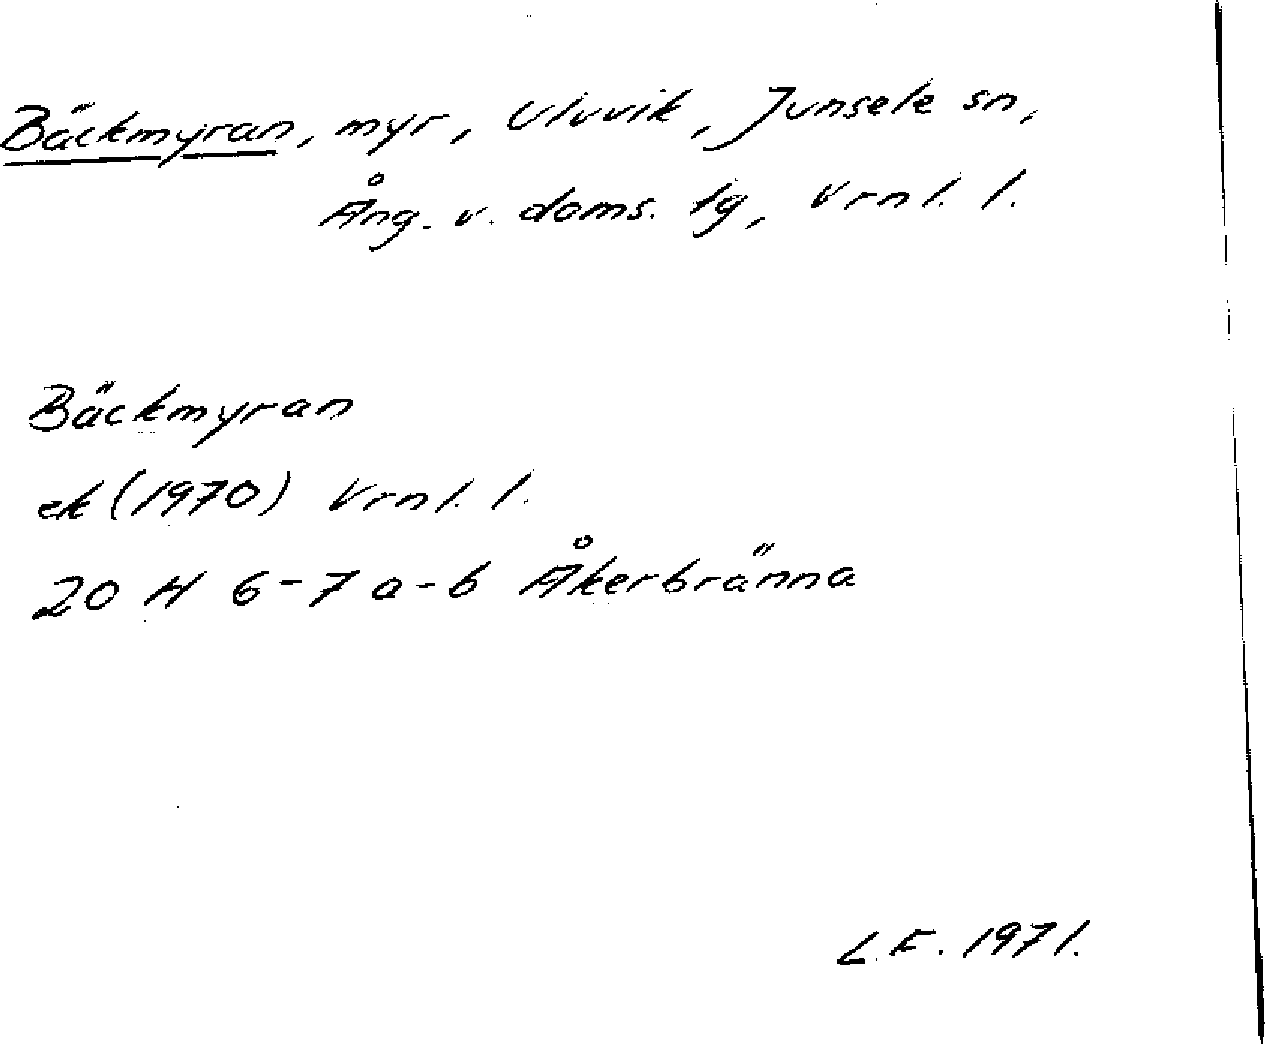 Bäckmyran, myr, Uluvik, Junsele sn,
Ång. v. doms. lg, Vrnl. l.
Bäckmyran
ek (1970) Vrnl. l.
20 H 6-7 a-b Åkerbränna
L.F. 1971.